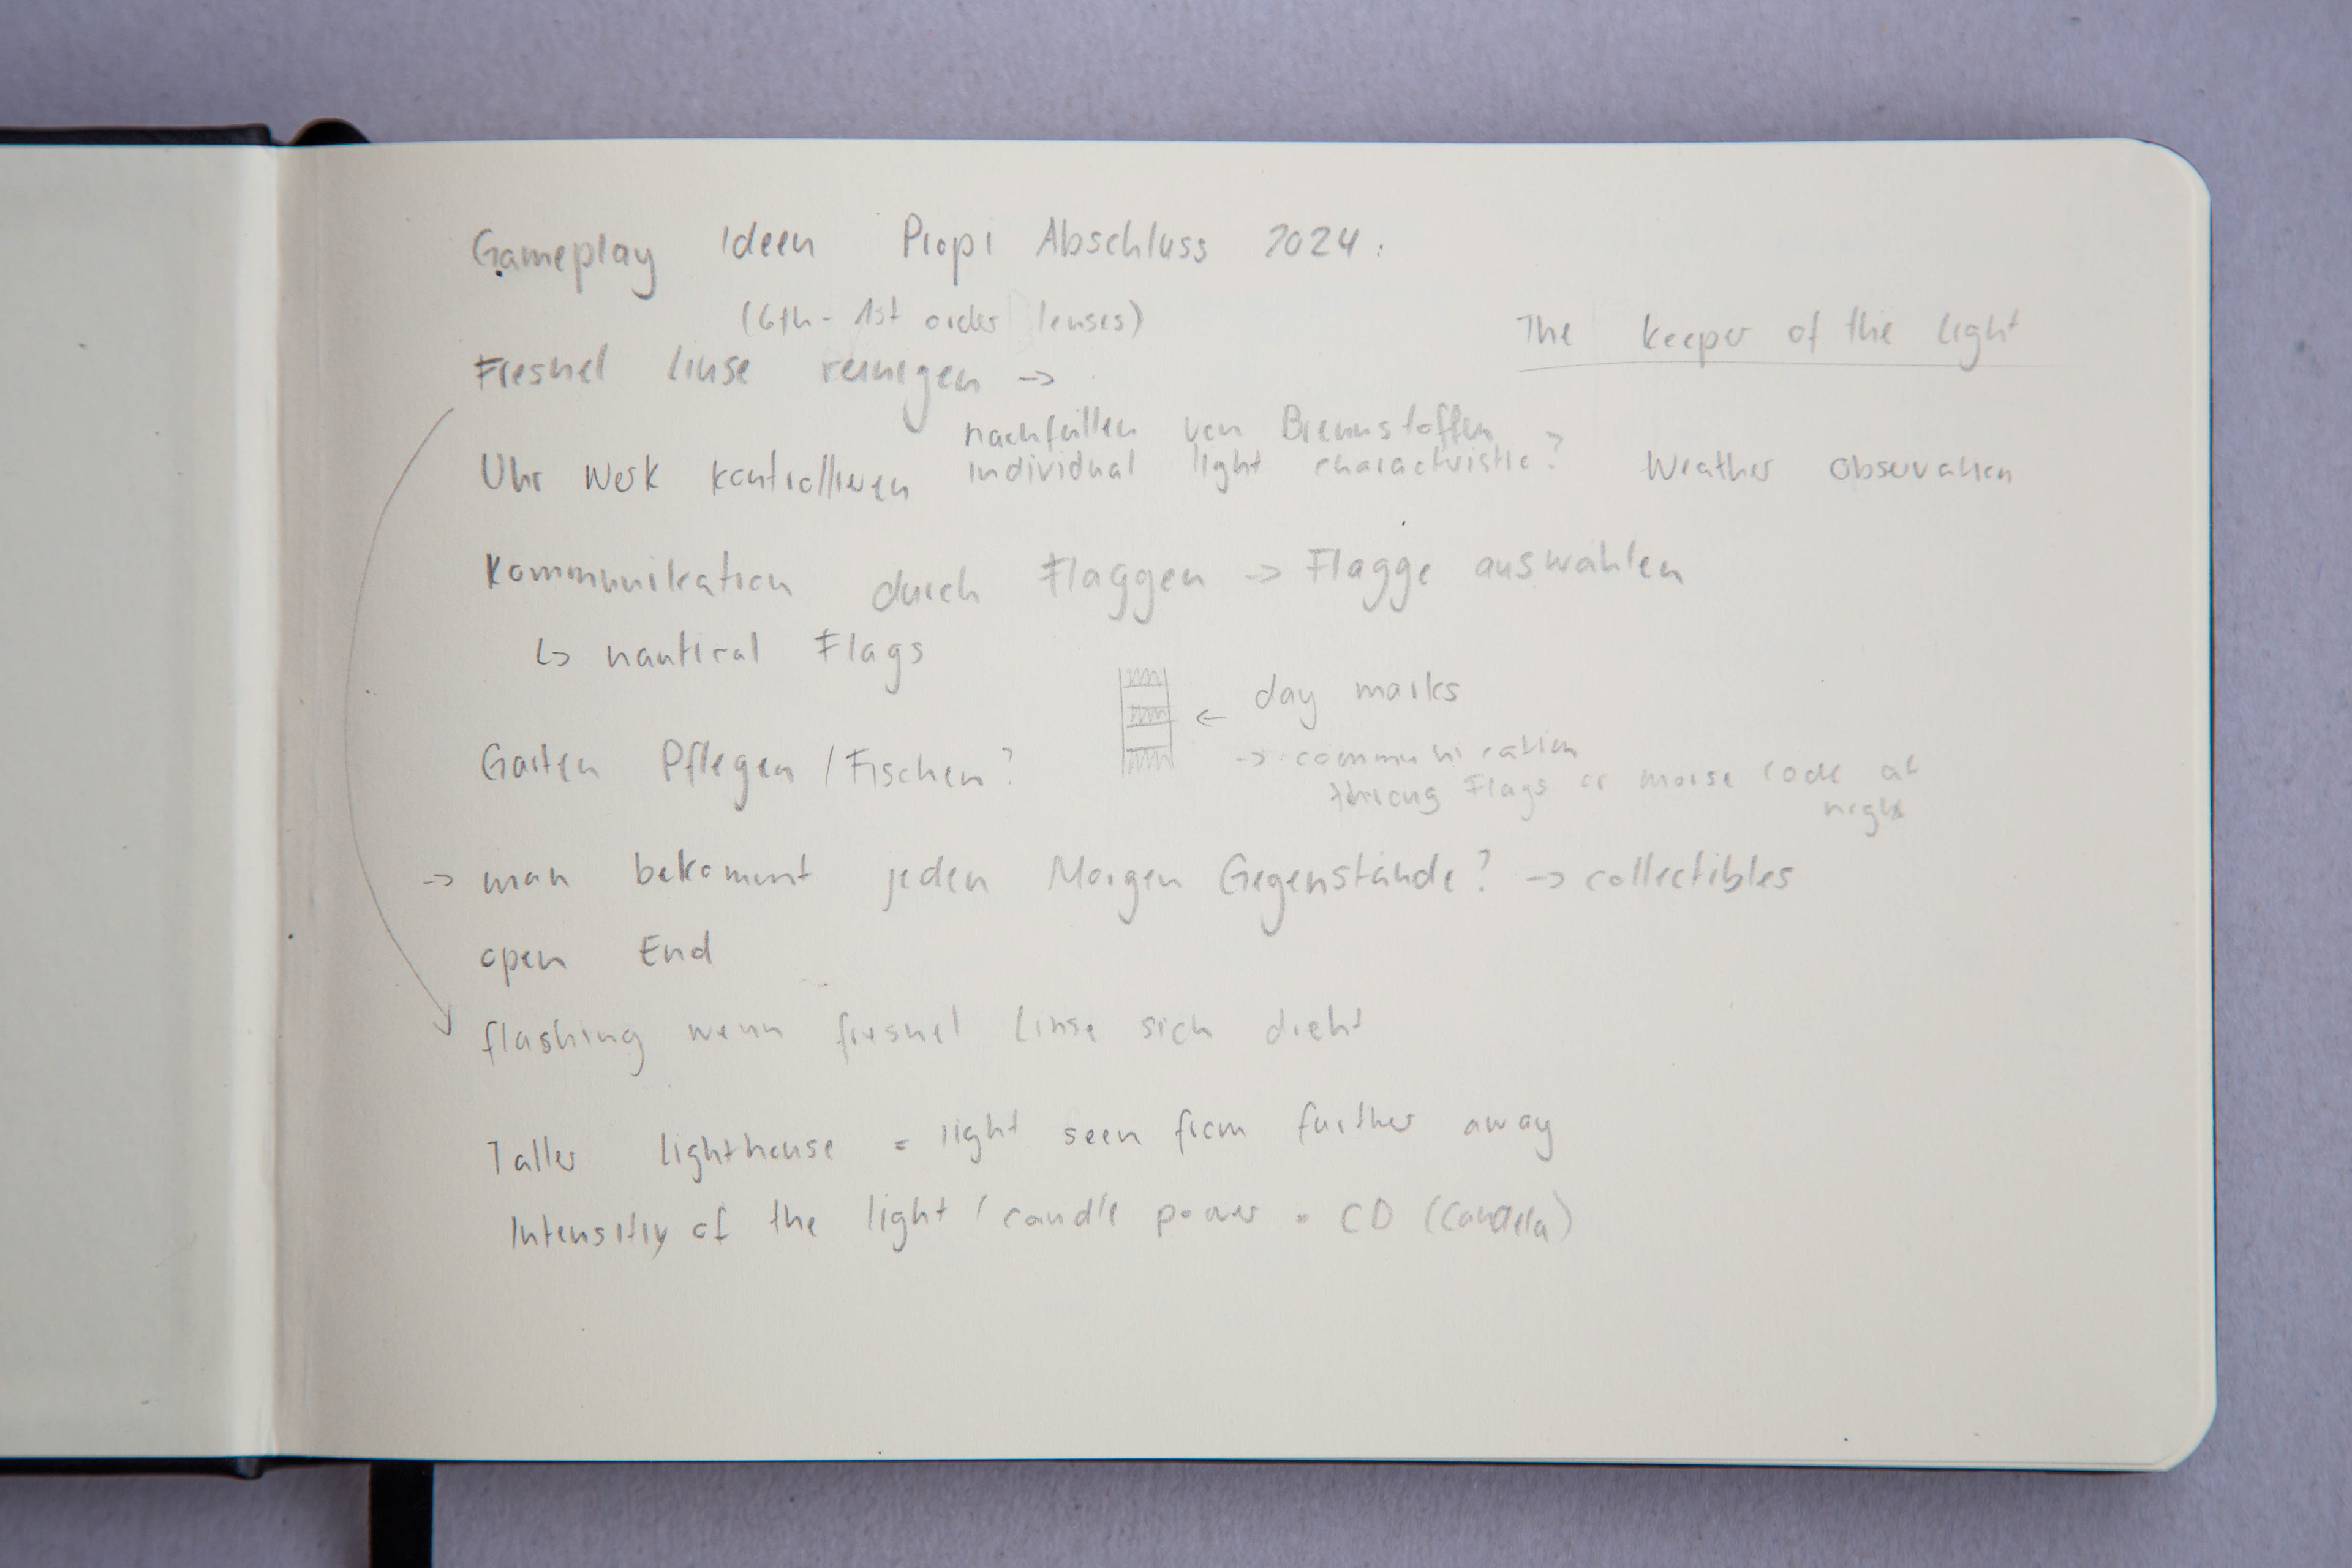 Gameplay Ideen Propi Abschluss 2024:
(6th - 1st order lenses)
The keeper of the light
Fresnel linse reinigen ->
nachfüllen von Brennstoffen
Uhr Werk kontrollieren individual light characteristic? Weather observation
Kommunikation durch Flaggen -> Flagge auswählen
↳ nautical Flags
<- day marks
Garten Pflegen / Fischen?
-> communication
throug Flags or morse code at
night
-> man bekommt jeden Morgen Gegenstände? -> collectibles
open End
flashing wenn fresnel linse sich dreht
Taller lighthouse = light seen from further away
Intensitiy of the light / candle power = CD (Candela)